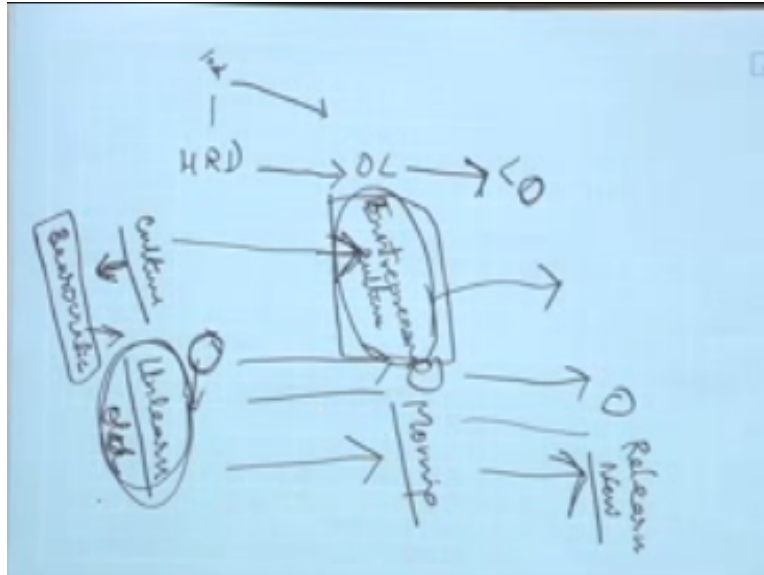 HRD → OL → LO
Culture
Beaurocritic
Entreprenear
culture
Unlearn
old
Moving
Relearn
New